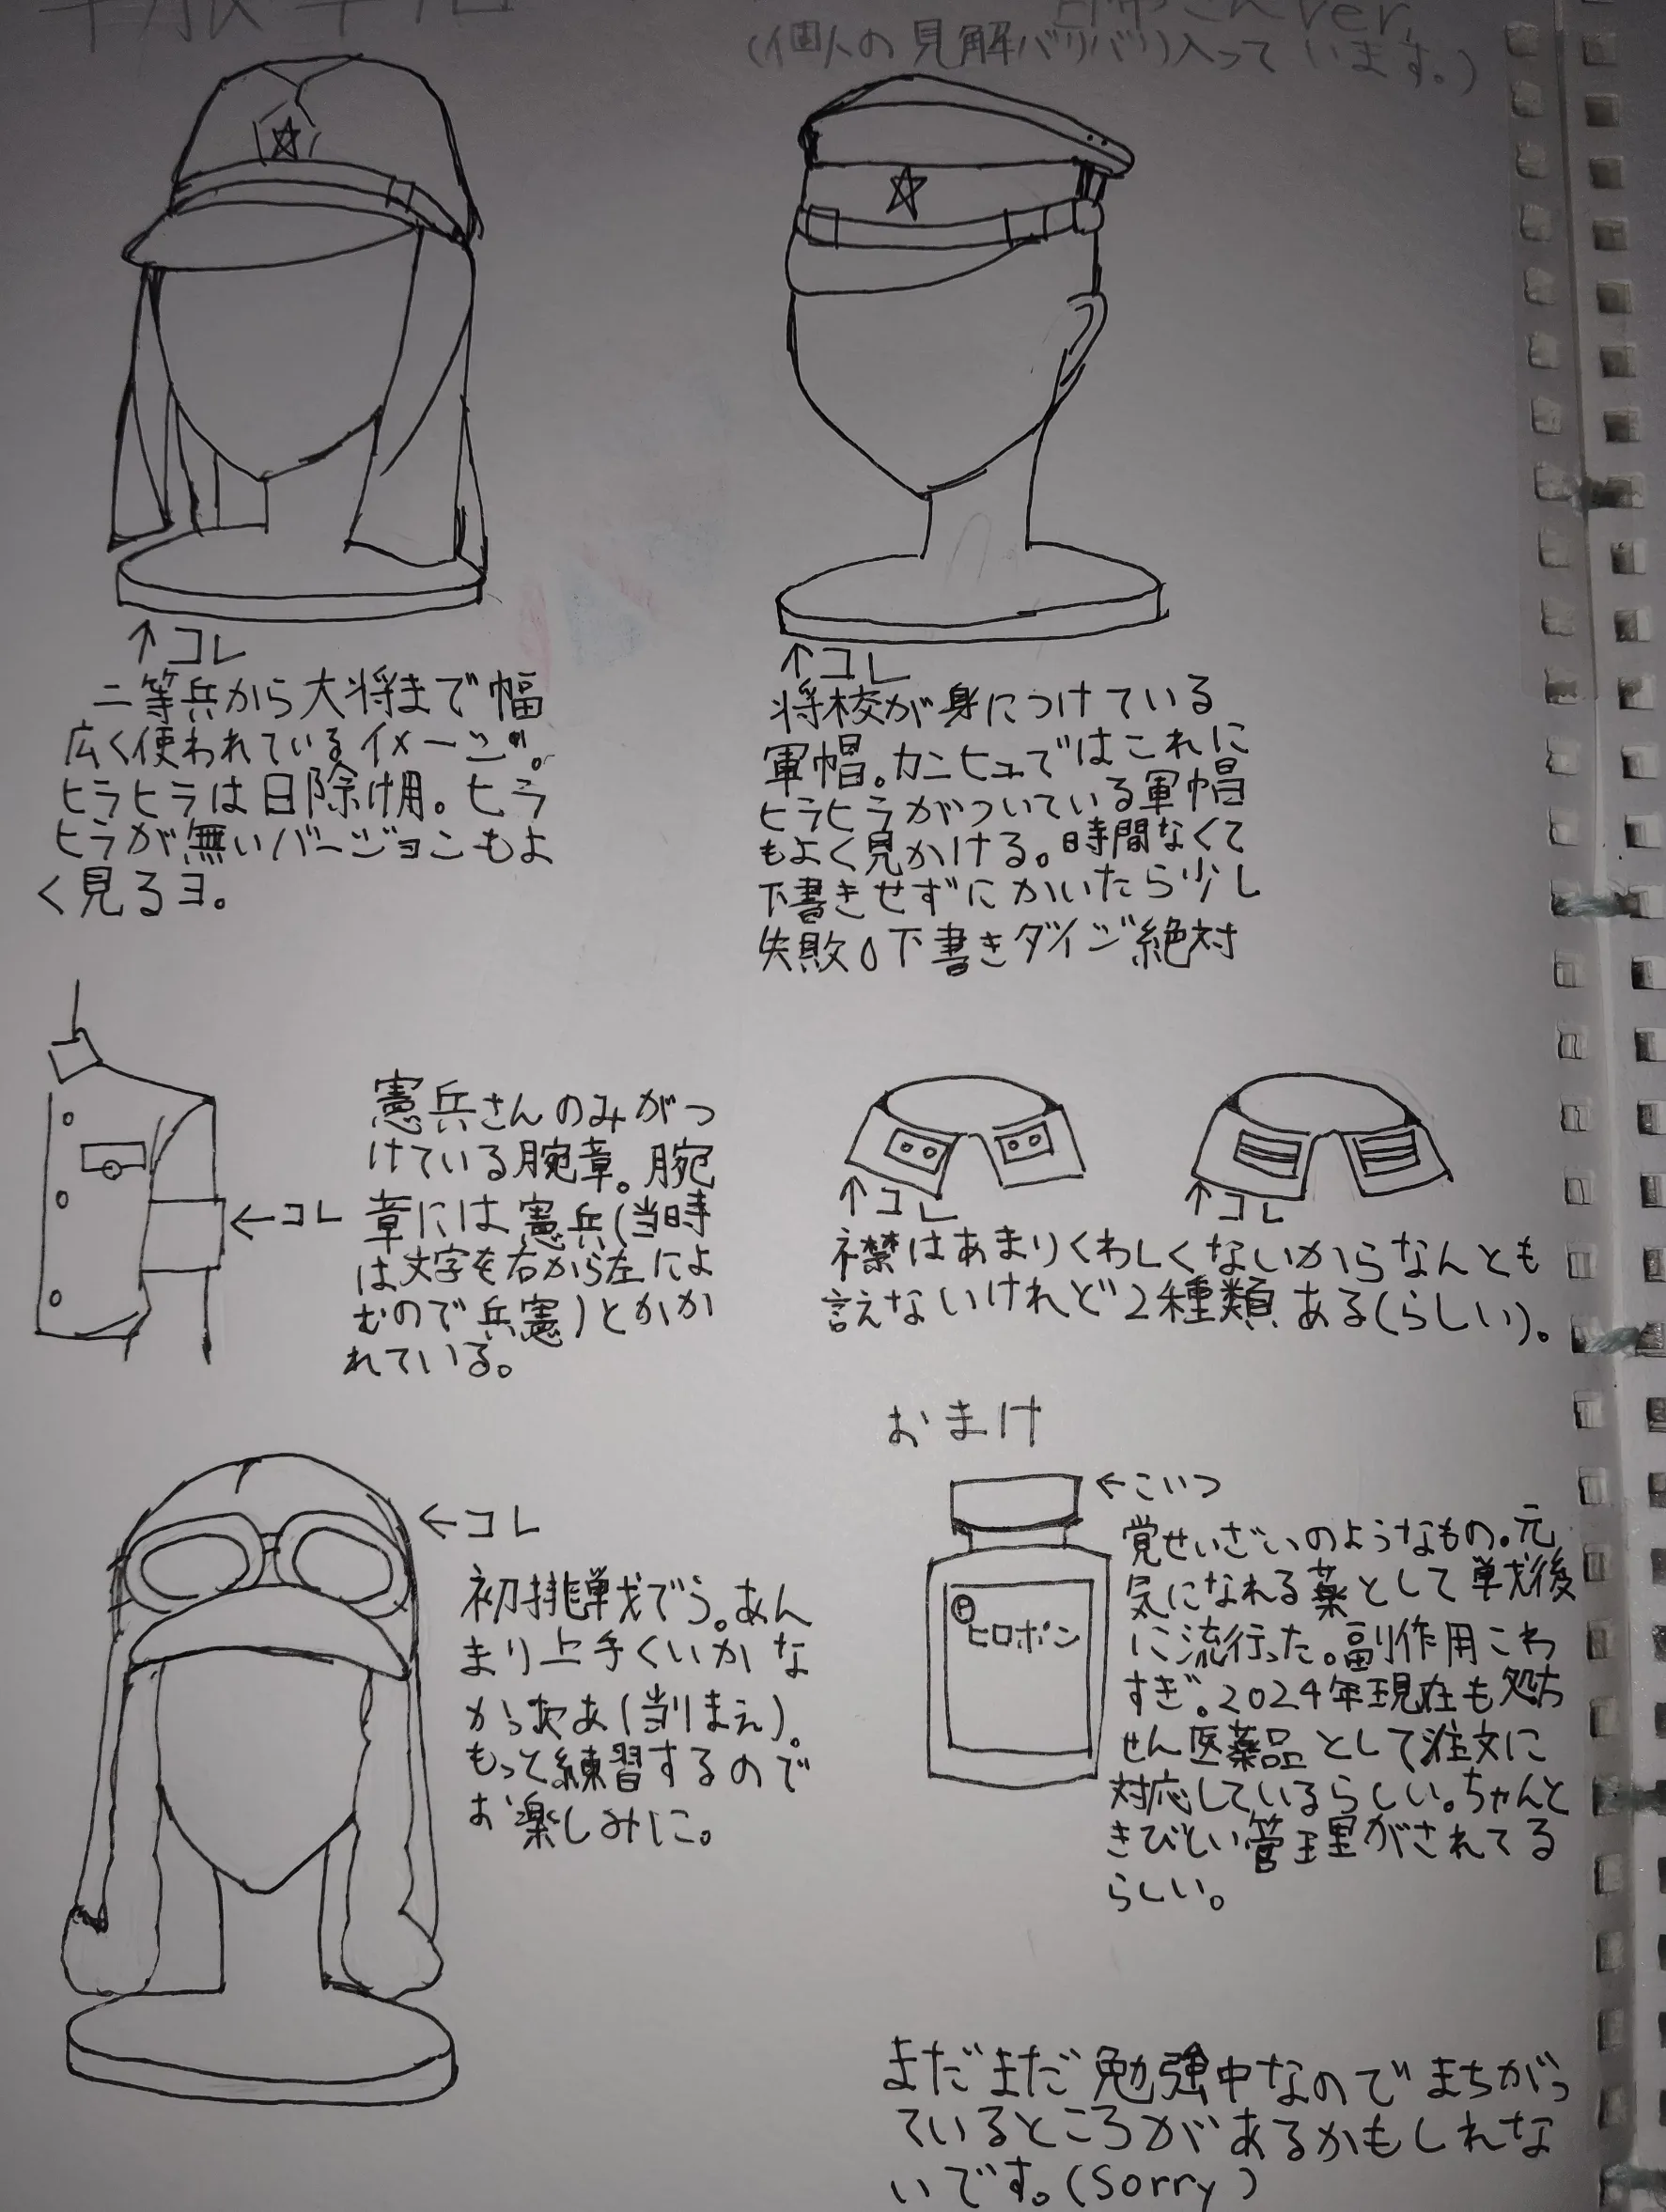 軍服軍帽
日帝さんver.
(個人の見解バリバリ入っています。)
↑コレ
二等兵から大将まで幅
広く使われているイメージ。
ヒラヒラは日除け用。ヒラ
ヒラが無いバージョンもよ
く見るヨ。
↑コレ
将校が身につけている
軍帽。カンヒュではこれに
ヒラヒラがついている軍帽
もよく見かける。時間なくて
下書きせずにかいたら少し
失敗。下書きダイジ絶対
憲兵さんのみがつ
けている腕章。腕
←コレ
章には憲兵(当時
は文字を右から左によ
むので兵憲)とかか
れている。
↑コレ
↑コレ
襟はあまりくわしくないからなんとも
言えないけれど2種類ある(らしい)。
←コレ
初挑戦でう。あん
まり上手くいかな
かったあ(当りまえ)。
もっと練習するので
お楽しみに。
おまけ
←こいつ
ヒロポン
覚せいざいのようなもの。元
気になれる薬として戦後
に流行った。副作用こわ
すぎ。2024年現在も処方
せん医薬品として注文に
対応しているらしい。ちゃんと
きびしい管理がされてる
らしい。
まだまだ勉強中なのでまちがっ
ているところがあるかもしれな
いです。(Sorry)